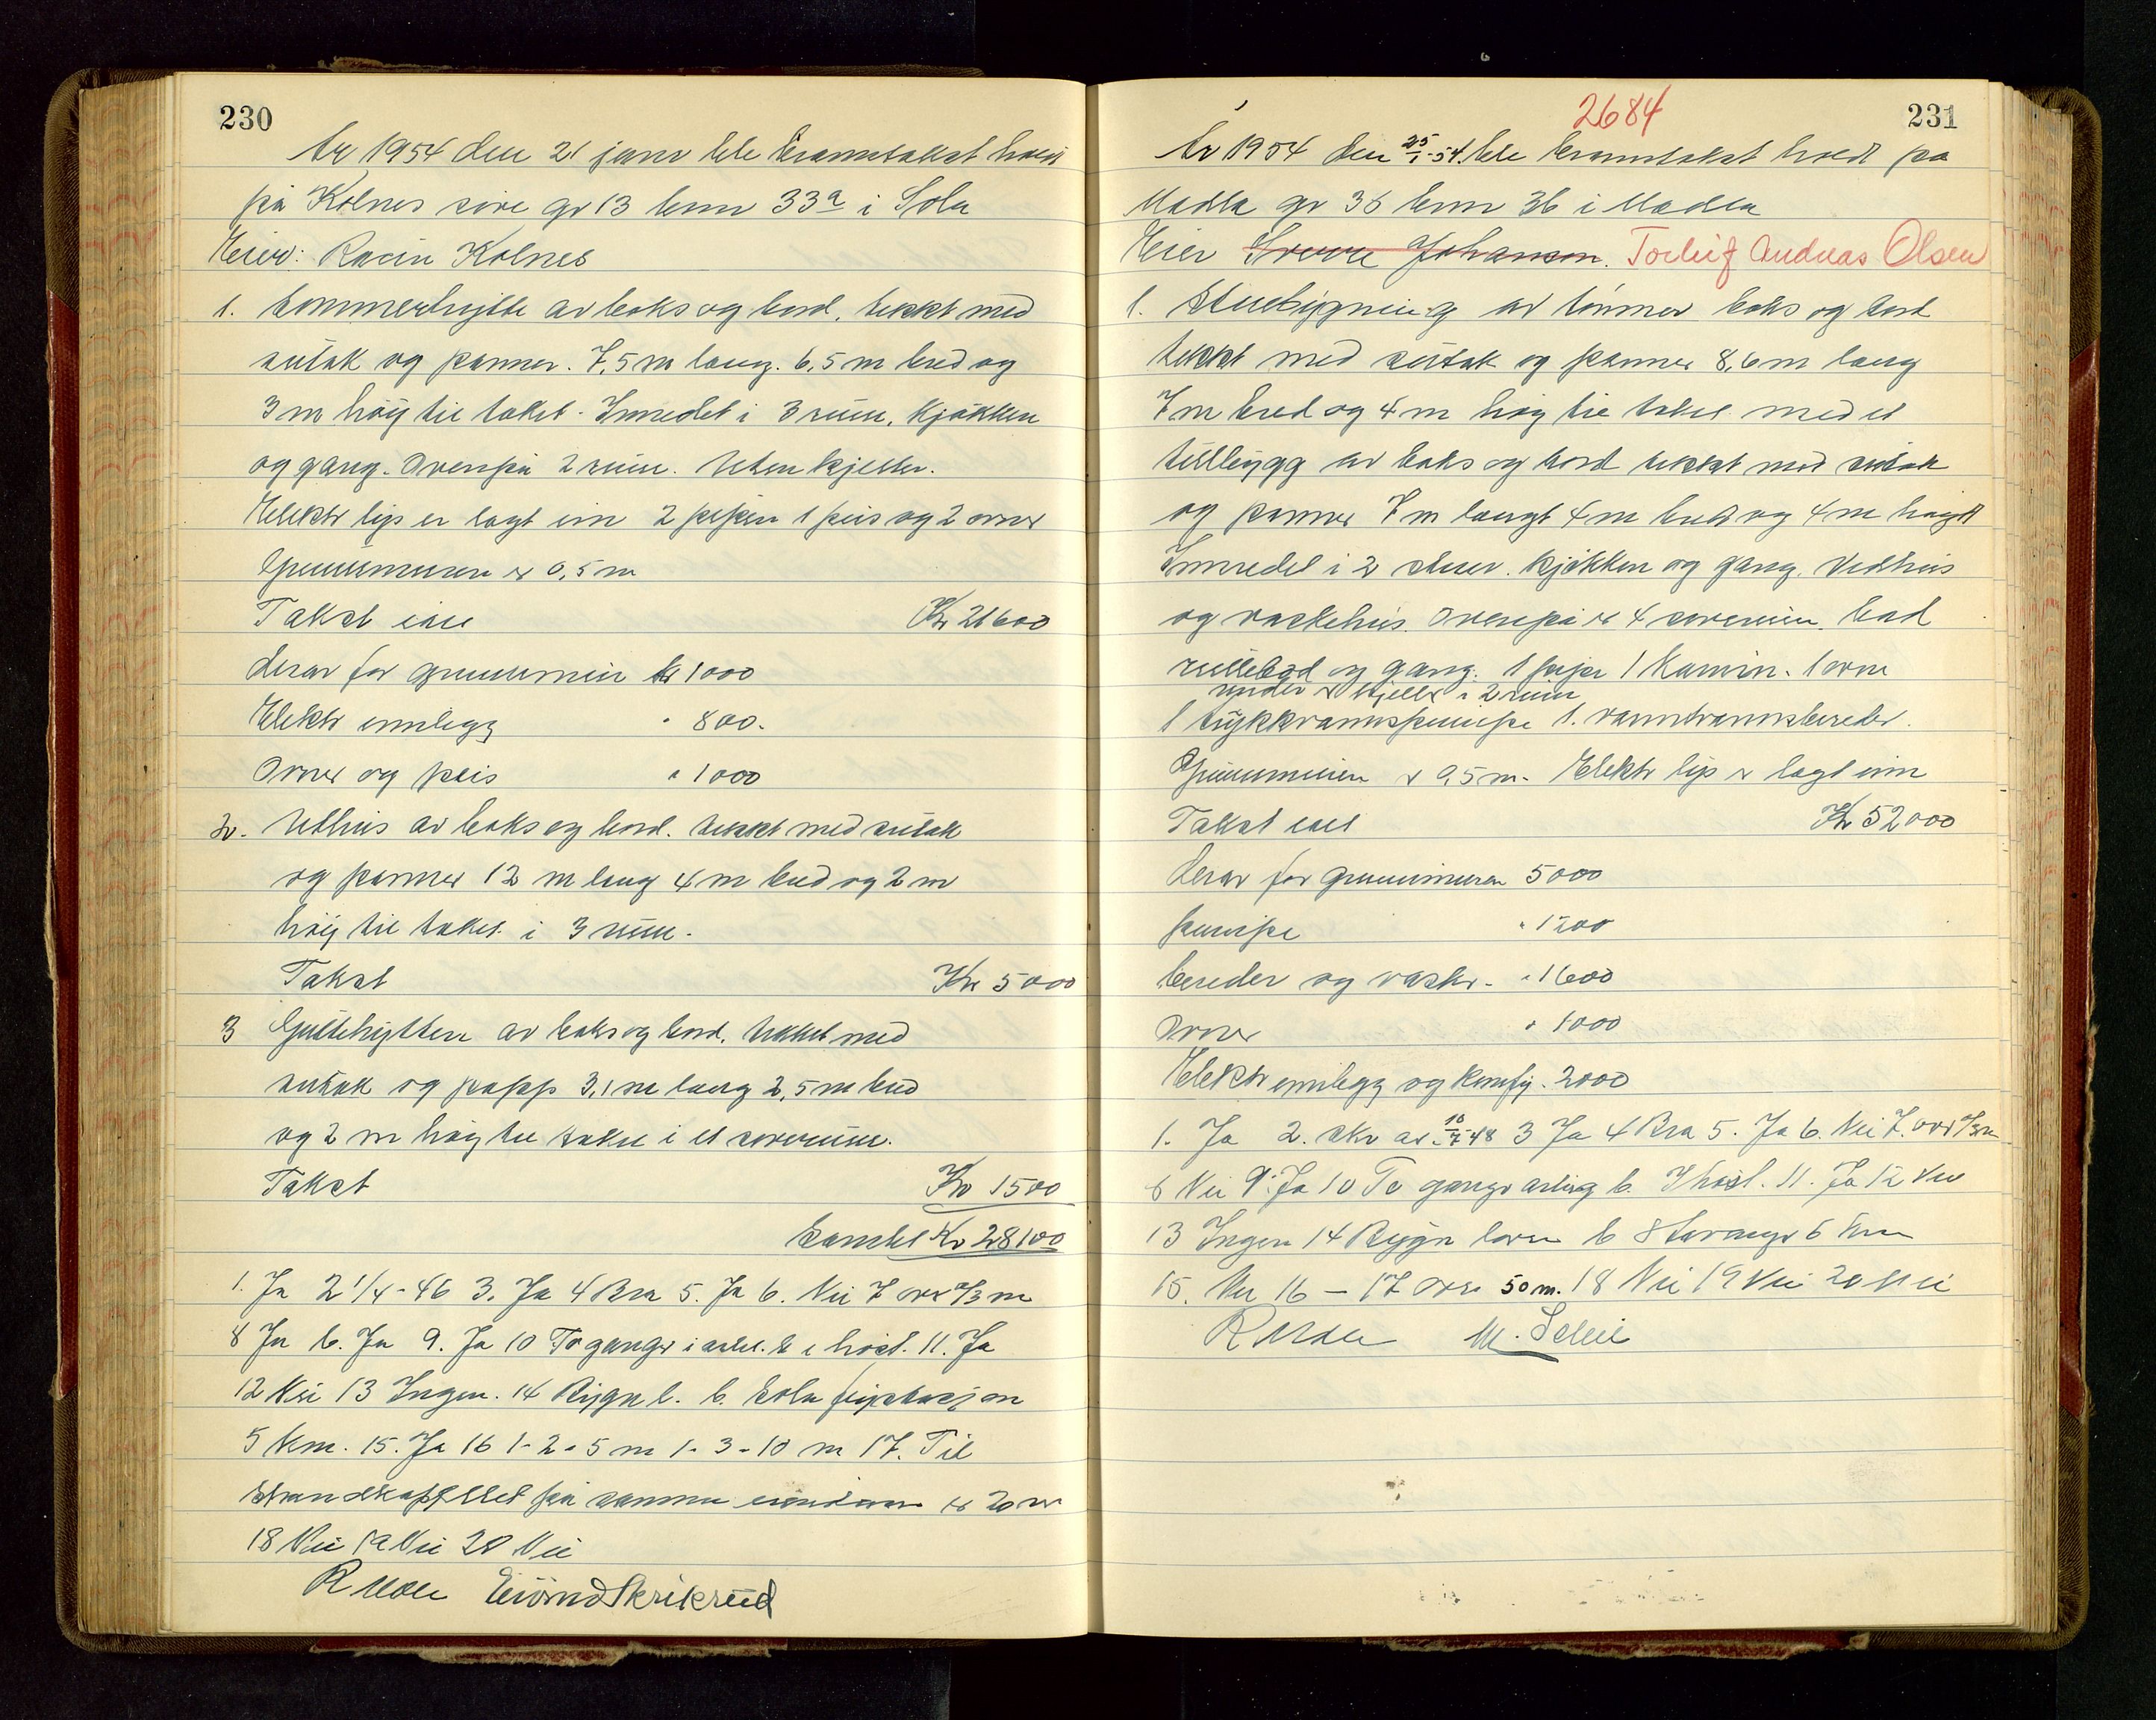 230
År 1954 den 21 janr ble branntakst holdt
på Kolnes søre gr 13 bnr 33a i Sola
Eier: Rasin Kolnes
1. Sommerhytte av boks og bord. tekket med
sutak og panner. 7,5 m lang. 6,5 m bred og
3 m høy til taket. Innredet i 3 rum, kjøkken
og gang. Ovenpå 2 rum. Uten kjeller.
Elektr lys er lagt inn 2 piper 1 peis og 2 ovner
Grunnmuren er 0,5 m
Takst inn Kr 21600
derav for grunnmur kr 1000
Elektr innlegg " 800.
Ovner og peis " 1000
2. Uthus av boks og bord. tekket med sutak
og panner 12 m lang 4 m bred og 2 m
høy til taket i 3 rum.
Takst Kr 5000
3 Gjestehytten av boks og bord. tekket med
sutak og papp 3,1 m lang 2,5 m bred
og 2 m høy til taket i et soverum.
Takst Kr 1500
Samlet Kr 28100
1. Ja 2 1/4-46 3. Ja 4 Bra 5. Ja 6. Nei 7 over 2/3 m
8 Ja b. Ja 9. Ja 10 To ganger i året. b i høst. 11. Ja
12 Nei 13 Ingen. 14 Bygn l. b. Sola flystasjon
5 km. 15. Ja 16 1-2-5 m 1-3-10 m 17. Til
på samme eiendom er 20 m
18 Nei 19 Nei 20 Nei
R Eivind Skrikrud
2684
231
År 1954 den 25/1-54. ble branntakst holdt på
Madla gr 36 bnr 36 i Madla
Eier Sverre Johanson. Torleif Andreas Olsen
1. Stuebygning av tømmer boks og bord
tekket med sutak og panner 8,6 m lang
7 m bred og 4 m høg til taket med et
tillbygg av boks og bord tekket med sutak
og panner 7 m langt 4 m bred og 4 m høgt
Innredet i 2 stuer. kjøkken og gang. Vedhus
og vaskehus. Ovenpå er 4 soverum. bad
rullebod og gang. 1 pipe 1 Kamin. 1 ovn
under er kjeller i 2 rum
1 trykkvannspumpe 1. varmtvannsbereder.
Grunnmuren er 0,5 m. Elektr lys er lagt inn
Takst inn Kr 52000
derav for grunnmuren 5000
pumpe " 1200
bereder og vasker. " 1600
Ovner " 1000
Elektr innlegg og komfy. 2000
1. Ja 2. skr av. 10/7-48 3 Ja 4 Bra 5. Ja 6. Nei 7. over 2/3 m
8 Nei 9. Ja 10 To ganger årlig b. I høst. 11. Ja 12 Nei
13 Ingen 14 Bygn loven b Stavanger 6 km
15. Nei 16 – 17 Over 50 m. 18 Nei 19 Nei 20 Nei
R M.